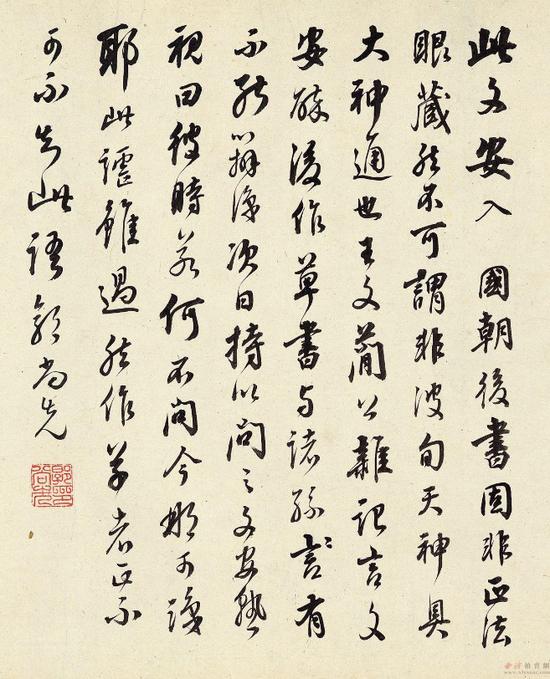 此文安入 國朝後書固非正法
眼藏然不可謂非波旬天神具
大神通也王文簡公雜記言文
安醉後作草書与諸孫言有
不能辨識次日持以問之文安熟
視曰彼時若何不問今那可識
耶此謔雖過然作草者正不
可不知此語郭尚先
www.xlysauc.com